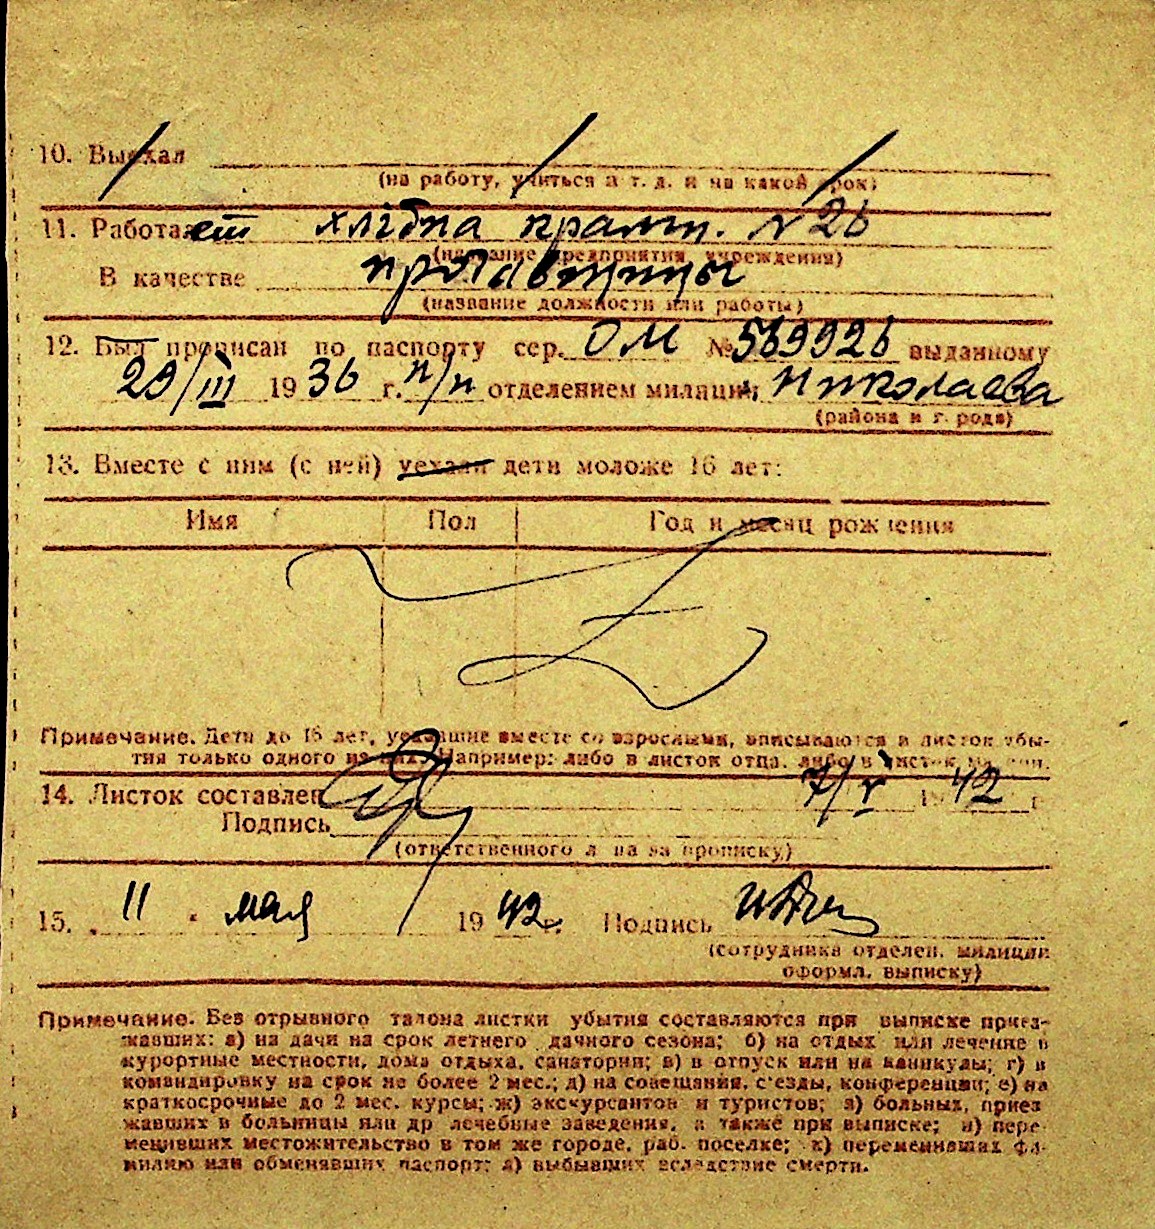 10. Выехал
(на работу, учиться и т. д. и на какой срок)
11. Работает хлібна крамн. № 26
(название предприятия, учреждения)
В качестве продавщицы
(название должности или работы)
12. Был прописан по паспорту сер. ОМ № 569926 выданному
29/III 1936 г. н/н отделением милиции Николаева
(района и города)
13. Вместе с ним (с ней) уехали дети моложе 16 лет:
Имя Пол Год и месяц рождения
Примечание. Дети до 16 лет, уехавшие вместе со взрослыми, вписываются в листок убы-
тия только одного из них. Например: либо в листок отца, либо в листок
14. Листок составлен 7/V 1942 г.
Подпись
(ответственного лица за прописку)
15. 11 " мая 1942 г. Подпись
(сотрудника отделен. милиции
оформл. выписку)
Примечание. Без отрывного талона листки убытия составляются при выписке приез-
жавших: а) на дачи на срок летнего дачного сезона; б) на отдых или лечение в
курортные местности, дома отдыха, санатории; в) в отпуск или на каникулы; г) в
командировку на срок не более 2 мес.; д) на совещания, съезды, конференции; е) на
краткосрочные до 2 мес. курсы; ж) экскурсантов и туристов; з) больных, приез
жавших в больницы или др лечебные заведения, а также при выписке; и) пере
менивших местожительство в том же городе, раб. поселке; к) переменивших фа-
милию или обменявших паспорт; л) выбывших вследствие смерти.